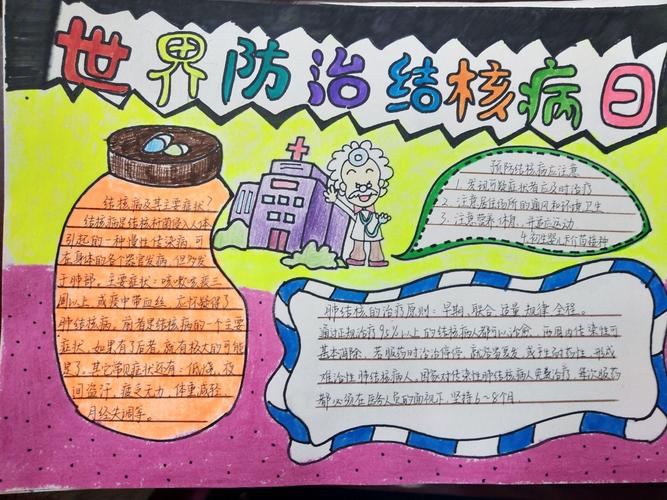 世界防治结核病日
结核病及其主要症状?
结核病是结核杆菌侵入人体
引起的一种慢性传染病 可
在身体的各个器官发病 但多发
于肺部。主要症状:咳嗽咳痰三
周以上 或痰中带血丝 应怀疑得了
肺结核病。前者是结核病的一个主要
症状 如果有了后者,就有极大的可能
是了。其它常见症状还有:低烧、夜
间盗汗、疲乏无力、体重减轻、
月经失调等。
预防结核病应注意
1.发现可疑症状者应及时治疗
2.注意居住场所的通风和环境卫生
3.注意营养 休息 并适应运动
4.初生婴儿卡介苗接种
肺结核的治疗原则:早期 联合 适量 规律 全程。
通过正规治疗95%以上的结核病人都可以治愈 两周内传染性可
基本消除 若服药时治治停停 就容易复发 或产生耐药性 形成
难治性肺结核病人。国家对传染性肺结核病人免费治疗 每次服药
都必须在医务人员的面视下 坚持6~8个月.